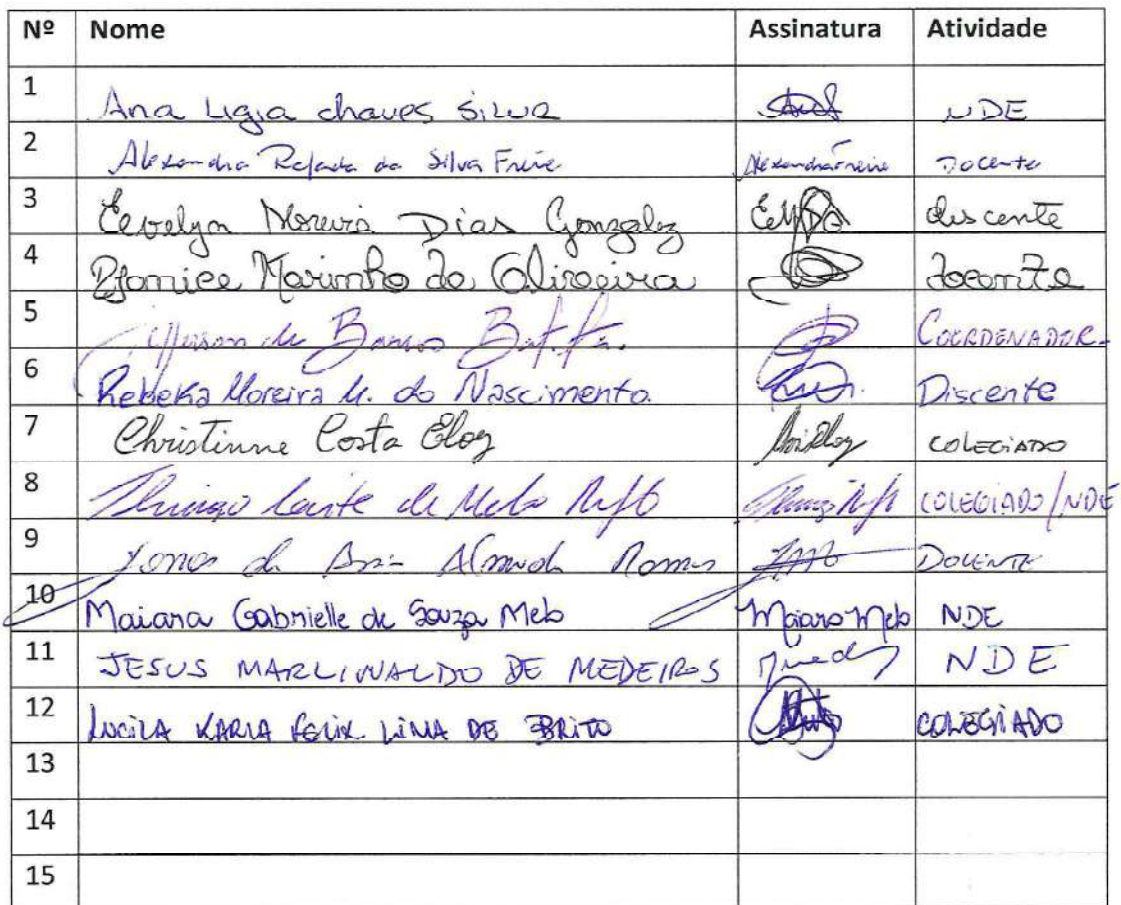 Nº Nome Assinatura Atividade
1 Ana Ligia chaves Silva NDE
2 Alexandra Rafaela da Silva Freire Alexandra Freire Docente
3 Eevelyn Moreira Dias Gonzalez EMDG discente
4 Djamice Marinho de Oliveira docente
5 Jefferson de Barros Batista. COORDENADOR
6 Rebeka Moreira M. do Nascimento. Discente
7 Christinne Costa Eloy COLEGIADO
8 Thiago Leite de Melo Ruffo Thiago Ruffo COLEGIADO/NDE
9 de Almeida Ramos DOCENTE
10 Maiara Gabrielle de Souza Melo Maiara Melo NDE
11 JESUS MARLINALDO DE MEDEIROS NDE
12 LUCILA KARLA FELIX LIMA DE BRITO COLEGIADO
13
14
15